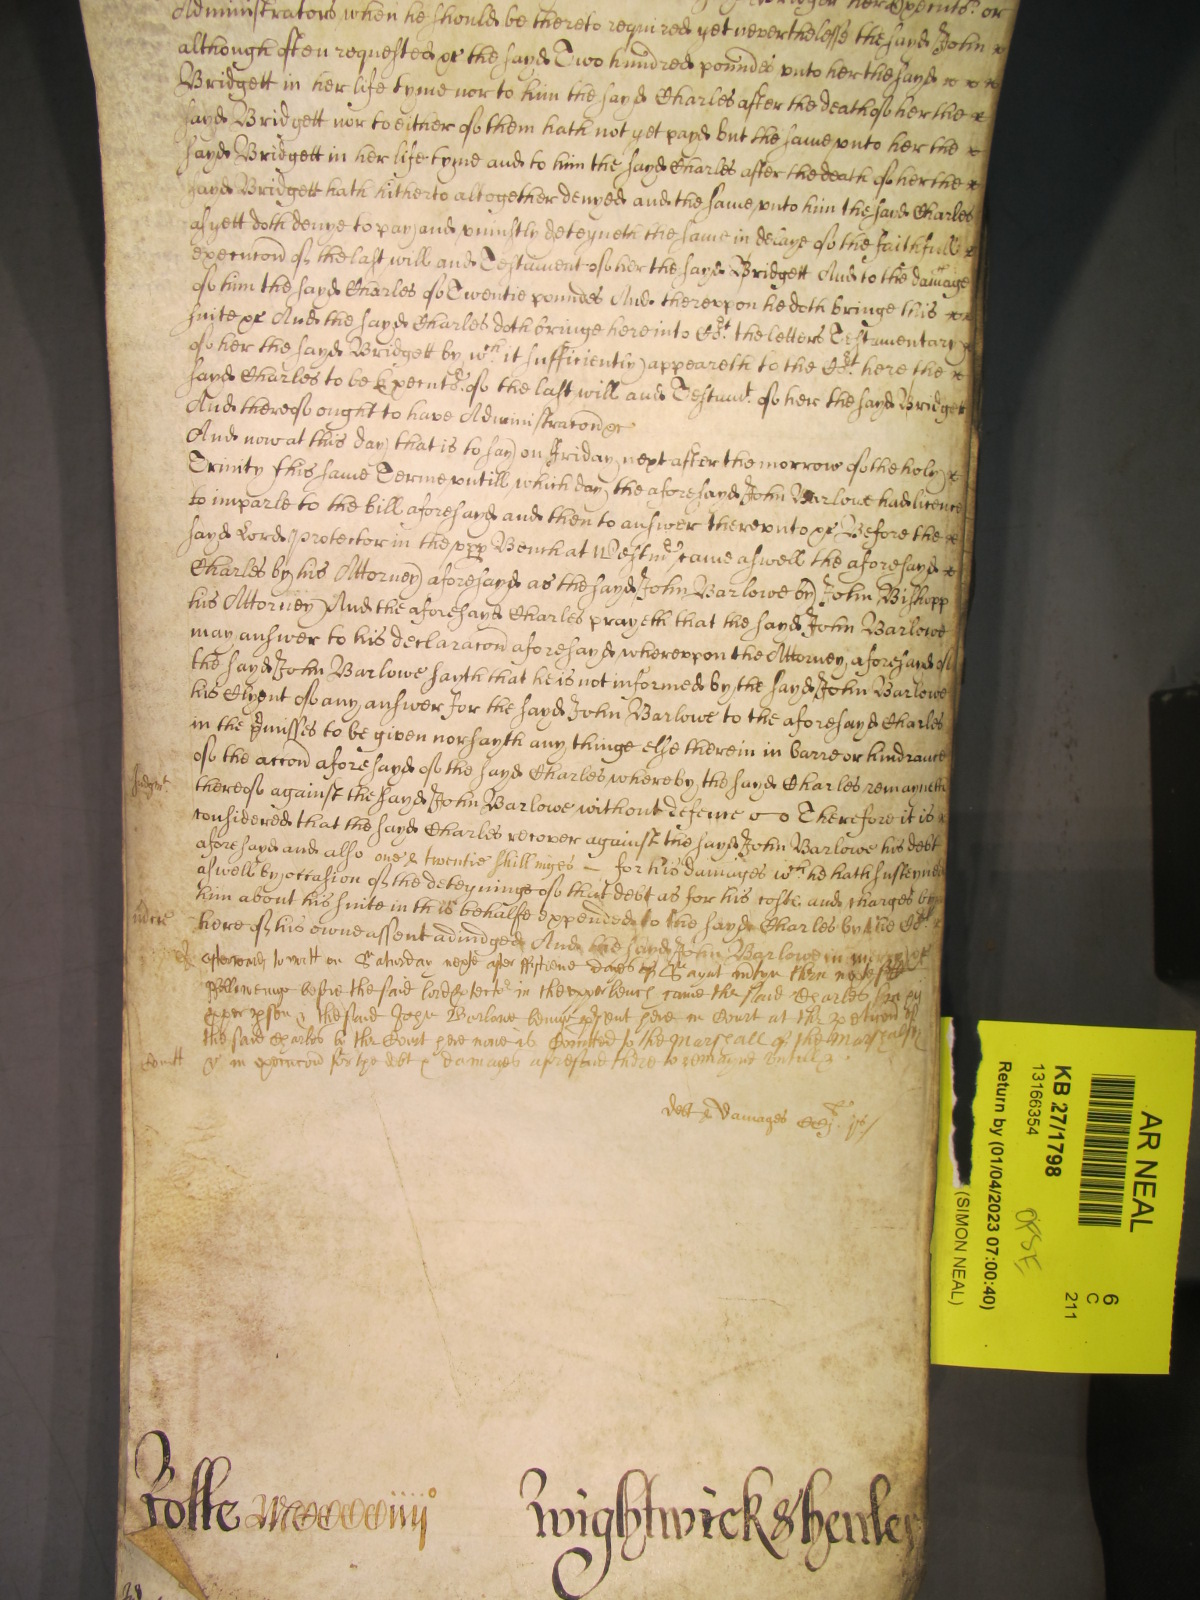 Administrators when he should be thereto required yet neverthelesse the sayd John
although often requested &c the sayd Two hundred poundes vnto her the sayd
Bridgett in her life tyme nor to him the sayd Charles after the death of her the
sayd Bridgett nor to either of them hath not yet payd but the same vnto her the
sayd Bridgett in her life tyme and to him the sayd Charles after the death of her the
sayd Bridgett hath hitherto altogether denyed and the same vnto him the sayd Charles
as yett doth denye to pay and vniustly deteyneth the same in delaye of the faithfull
execucon of the last will and Testament of her the sayd Bridgett And to the damage
of him the sayd Charles of Twentie poundes And therevpon he doth bringe this
suite &c And the sayd Charles doth bringe here into Co:rt the letters Testamentary
of her the sayd Bridgett by w:ch it sufficiently appeareth to the Co:rt here the
sayd Charles to be Execut:r of the last will and Testam:t of her the sayd Bridgett
And thereof ought to have Administracon &c
And now at this day that is to say on Friday next after the morrow of the holy
Trinity this same Terme vntill which day the aforesayd John Barlowe had licence
to imparle to the bill aforesayd and then to answer therevnto &c Before the
sayd Lord Protector in the vpp Bench at Westm:r came aswell the aforesayd
Charles by his Attorney aforesayd as the sayd John Barlowe by John Bishopp
his Attorney And the aforesayd Charles prayeth that the sayd John Barlowe
may answer to his declaracon aforesayd wherevpon the Attorney aforesayd of
the sayd John Barlowe sayth that he is not informed by the sayd John Barlowe
his Clyent of any answer for the sayd John Barlowe to the aforesayd Charles
in the p:misses to be given nor sayth any thinge else therein in barre or hindrance
of the accon aforesayd of the sayd Charles whereby the sayd Charles remayneth
Judgm:t thereof against the sayd John Barlowe without defence Therefore it is
considered that the sayd Charles recover against the sayd John Barlowe his debt
aforesayd and also one & twentie shillinges for his damages w:ch he hath susteyned
aswell by occasion of the deteyninge of that debt as for his costs and charges by
him about his suite in this behalfe expended to the sayd Charles by the Co:rt
here of his owne assent adiudged And the sayd John Barlowe in mercy &c
afterwards to witt on Saturday next after fifteene dayes of Saynt then next
followeinge before the said lord Protector in the vpper bench came the said Charles in his
proper pson & the said John Barlowe beinge p:sent here in Court at the peticon of
the said Charles by the Court here now is Comitted to the Marshall of the Marshalsey
Comitt &c in execucon for the debt & damages aforesaid there to remayne vntill &c
debt & damages
Rolle Wightwick & henley
AR NEAL
KB 27/1798
13166354
Return by (01/04/2023 07:00:40)
(SIMON NEAL)
6
C
211